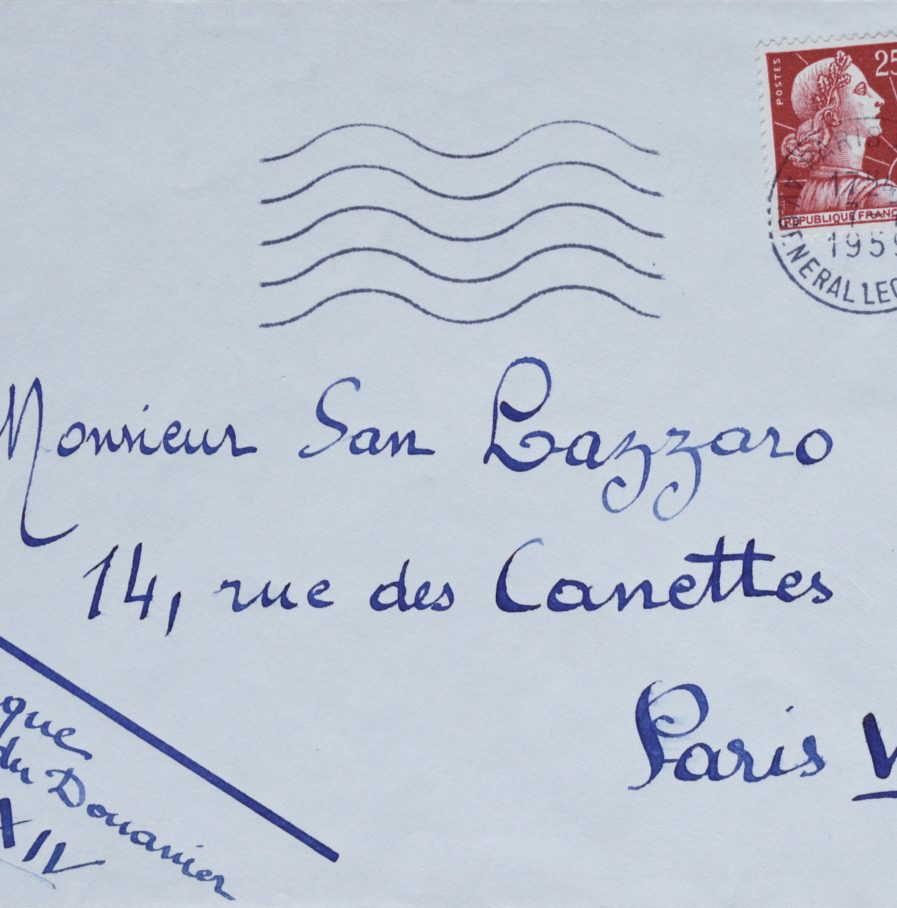 POSTES
25
RÉPUBLIQUE FRANÇ
PARIS
17
1959
GENERAL LEC
Monsieur San Lazzaro
14, rue des Canettes
Paris V
que
du Douanier
XIV